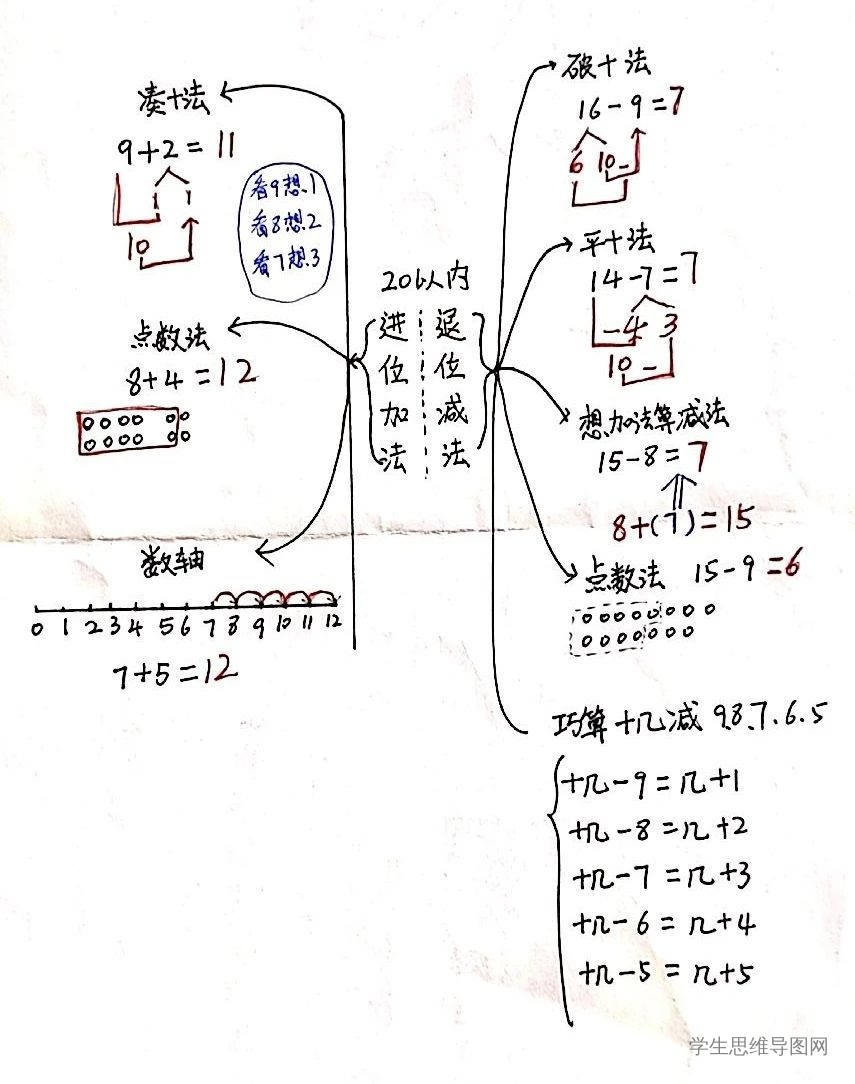 20以内
进位加法
退位减法
凑十法
9+2=11
1 1
10
看9想1
看8想2
看7想3
点数法
8+4=12
数轴
0 1 2 3 4 5 6 7 8 9 10 11 12
7+5=12
破十法
16-9=7
6 10-
平十法
14-7=7
-4 3
10-
想加法算减法
15-8=7
8+(7)=15
点数法 15-9=6
巧算十几减9.8.7.6.5
十几-9=几+1
十几-8=几+2
十几-7=几+3
十几-6=几+4
十几-5=几+5
学生思维导图网